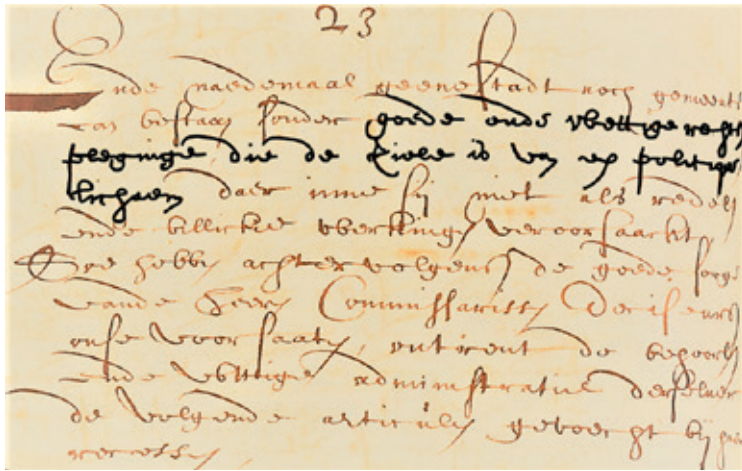 23
Ende naedemaal geene Stadt noch gemeente
can bestaan sonder goede ende wettige rechts
pleginge die de Ziele is van een politijc
lichaem daer inne sij niet als redelij
ende billickie werkingen veroorsaackt
Soo hebben achtervolgens de goede sorge
vande Heeren Commissarissen Deciseurs
onse voorsaaten, ontrent de behoorl
ende wettige administratie derselver
de volgende articulen gevoecht bij haer
recessen